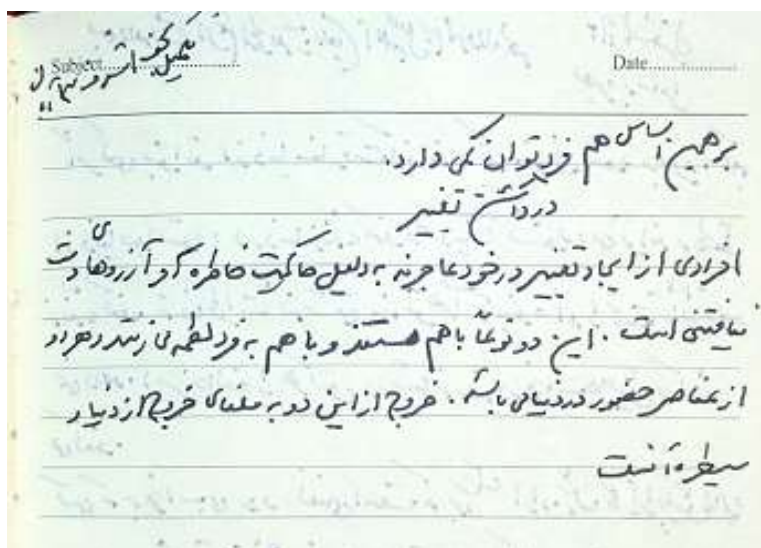 Subject
Date
تکمیل
بر همین اساس هم فرد توان کمی دارد.
درد آتش تغییر
افرادی از ایجاد تغییر در خود عاجزند به دلیل حاکمیت خاطره ها و آرزوهای دست
نیافتنی است. این دو نوعاً باهم هستند و باهم به فرد لطمه می زنند و هر دو
از عناصر حضور در دنیا می باشد. خروج از این دو به معنای خروج از دنیا و
سیطره آنست